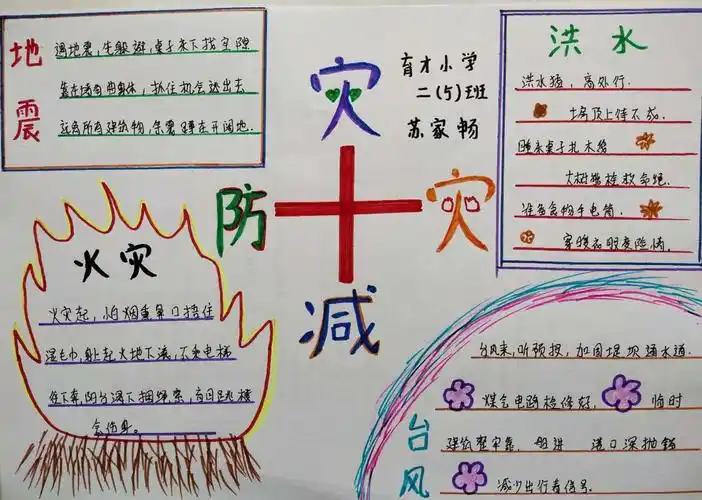 地震
遇地震,先躲避,桌子床下找空隙
靠在墙角曲身体,抓住机会逃出去
远离所有建筑物,余震蹲在开阔地.
灾
防
灾
减
育才小学
二(5)班
苏家畅
洪水
洪水猛,高处行.
土房顶上待不成.
睡床桌子扎木筏
大树能拴救命绳.
准备食物手电筒.
穿暖衣服度险情.
火灾
火灾起,怕烟熏鼻口捂住
湿毛巾,身上起火地下滚,不乘电梯
往下奔,阳台滑下捆绳索,盲目跳楼
会伤身.
台风
台风来,听预报,加固堤坝通水道.
煤气电路检修好,临时
建筑整牢靠,船进港口深抛锚
减少出行看信号.